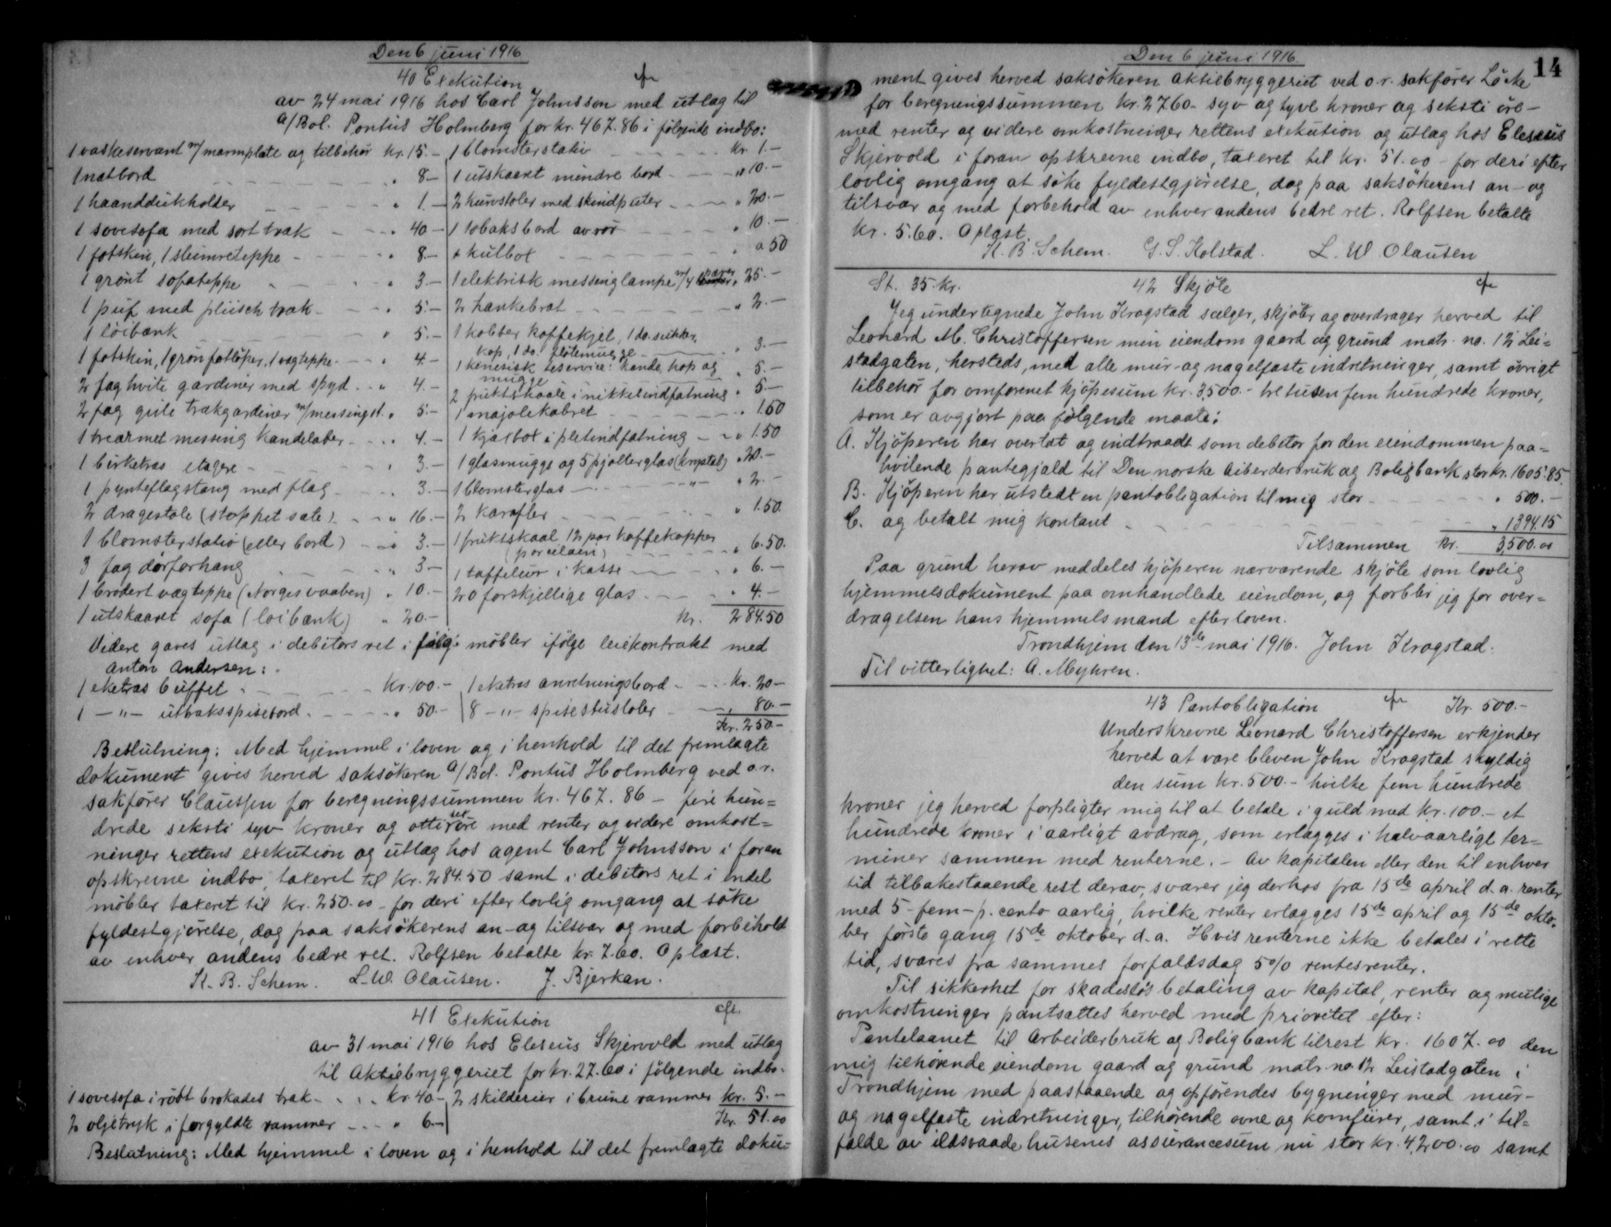 Den 6 juni 1916
40 Exekution
av 24 mai 1916 hos Carl Johnsson med utlag til
A/Bol. Pontus Holmberg for kr. 467.86 i følgende indbo:
1 vaskeservant m/marmplate og tilbehør kr. 15.-
1 natbord " 8.-
1 haanddukholder " 1.-
1 sovesofa med sort træk " 40.-
1 fotskin, 1 slumreteppe " 8.-
1 grønt sofateppe " 3.-
1 puf med plüsch træk " 5.-
1 løibænk " 5.-
1 fotskin, 1 grøn fotløper, 1 vægteppe " 4.-
2 fag hvite gardiner med spyd " 4.-
2 fag gule trækgardiner m/messingst. " 5.-
1 trearmet messing kandelaber " 4.-
1 birketræs etagere " 3.-
1 pynteflagstang med flag " 3.-
2 dragestole (stoppet sæte) " 16.-
1 blomsterstativ (eller bord) " 3.-
3 fag dørforhæng " 3.-
1 brodert vægteppe (Norges vaaben) " 10.-
1 utskaaret sofa (løibænk) " 20.-
1 blomsterstativ kr. 1.-
1 utskaaret mindre bord " 10.-
2 kurvstoler med skindputer " 20.-
1 tobaksbord av rør " 10.-
1 kulbox " 0.50
1 elektrisk messinglampe m/4 " 25.-
2 hankebrat " 2.-
1 kobber kaffekjel, 1 do. sukker
kop, 1 do. fløtemugge " 3.-
1 kinesisk teservice: kande, kop og
mugge " 5.-
2 fruktskaale i nikkelindfatning " 5.-
1 majolekabret " 1.50
1 kjæxbox i pletindfatning " 1.50
1 glasmugge og 5 pjolterglas (krystal) " 20.-
1 blomsterglas " 2.-
2 karafler " 1.50
1 fruktskaal 12 par kaffekopper
(porcelæn) " 6.50
1 taffelur i kasse " 6.-
20 forskjellige glas " 4.-
kr. 284.50
Videre gaves utlæg i debitors ret i følg. møbler ifølge leiekontrakt med
Anton Andersen:
1 eketræs buffet kr. 100.- 1 eketræs anretningsbord kr. 20.-
1 -"- utbaksspisebord " 50.- 8 -"- spisestustoler " 80.-
Kr. 250.-
Beslutning: Med hjemmel i loven og i henhold til det fremlagte
dokument gives herved saksøkeren A/Bol. Pontus Holmberg ved o.r.
sakfører Claussen for beregningssummen kr. 467.86 - fire hun=
drede seksti syv kroner og otti sex øre med renter og videre omkost=
ninger rettens exekution og utlæg hos agent Carl Johnsson i foran
opskrevne indbo, taxeret til kr. 284.50 samt i debitors ret i endel
møbler taxeret til kr. 250.00 - for deri efter lovlig omgang at søke
fyldestgjørelse, dog paa saksøkerens an- og tilsvar og med forbehold
av enhver andens bedre ret. Rolfsen betalte kr. 7.60. Oplæst.
K. B. Schem. L. W. Olausen. J. Bjerkan.
41 Exekution
av 31 mai 1916 hos Eleseus Skjervold med utlæg
til Aktiebryggeriet for kr. 27.60 i følgende indbo.
1 sovesofa i rødt brokades træk kr. 40.- 2 skilderier i brune rammer kr. 5.-
2 oljetryk i forgyldte rammer " 6.- Kr. 51.00
Beslutning: Med hjemmel i loven og i henhold til det fremlagte doku=
Den 6 juni 1916.
14
ment gives herved saksøkeren Aktiebryggeriet ved o.r. sakfører Löcke
for beregningssummen kr. 27.60 - syv og tyve kroner og seksti öre -
med renter og videre omkostninger rettens exekution og utlæg hos Eleseus
Skjervold i foran opskrevne indbo, taxeret til kr. 51.00 - for deri efter
lovlig omgang at søke fyldestgjørelse, dog paa saksøkerens an- og
tilsvar og med forbehold av enhver andens bedre ret. Rolfsen betalte
kr. 5.60. Oplæst.
K. B. Schem. G. S. Kolstad. L. W. Olausen
St. 35 kr. 42 Skjöte
Jeg undertegnede John Krogstad sælger, skjöter og overdrager herved til
Leonard M. Christoffersen min eiendom gaard og grund matr. no. 12 Lei=
stadgaten, hersteds, med alle mur- og nagelfaste indretninger, samt övrigt
tilbehør for omforenet kjöpesum kr. 3500.- tretusen fem hundrede kroner,
som er avgjort paa følgende maate:
A. Kjöperen har overtat og indtraadt som debitor for den eiendommen paa=
hvilende pantegjæld til Den norske Arberderbruk og Boligbank stor kr. 1605.85
B. Kjöperen har utstedt en pantobligation til mig stor " 500.-
C. og betalt mig kontant " 1394.15
Tilsammen kr. 3500.00
Paa grund herav meddeles kjöperen nærværende skjöte som lovlig
hjemmelsdokument paa omhandlede eiendom, og forblir jeg for over=
dragelsen hans hjemmelsmand efter loven.
Trondhjem den 13de mai 1916. John Krogstad.
Til vitterlighet: A. Myhren.
43 Pantobligation Kr. 500.-
Underskrevne Leonard Christoffersen erkjender
herved at være bleven John Krogstad skyldig
den sum kr. 500.- hvilke fem hundrede
kroner jeg herved forpligter mig til at betale i guld med kr. 100.- et
hundrede kroner i aarligt avdrag, som erlægges i halvaarlige ter=
miner sammen med renterne. - Av kapitalen eller den til enhver
tid tilbakestaaende rest derav, svarer jeg derhos fra 15de april d.a. renter
med 5 - fem - p. cento aarlig, hvilke renter erlægges 15de april og 15de okto=
ber første gang 15de oktober d.a. Hvis renterne ikke betales i rette
tid, svares fra sammes forfaldsdag 5% rentesrenter.
Til sikkerhet for skadesløs betaling av kapital, renter og mulige
omkostninger pantsættes herved med prioritet efter:
Pantelaanet til Arbeiderbruk og Boligbank tilrest kr. 1607.00 den
mig tilhørende eiendom gaard og grund matr. no. 12 Leistadgaten i
Trondhjem med paastaaende og opførendes bygninger med mur-
og nagelfaste indretninger, tilhørende ovne og komfurer, samt i til=
fælde av ildsvaade husenes assurancesum nu stor kr. 4,200.00 samt